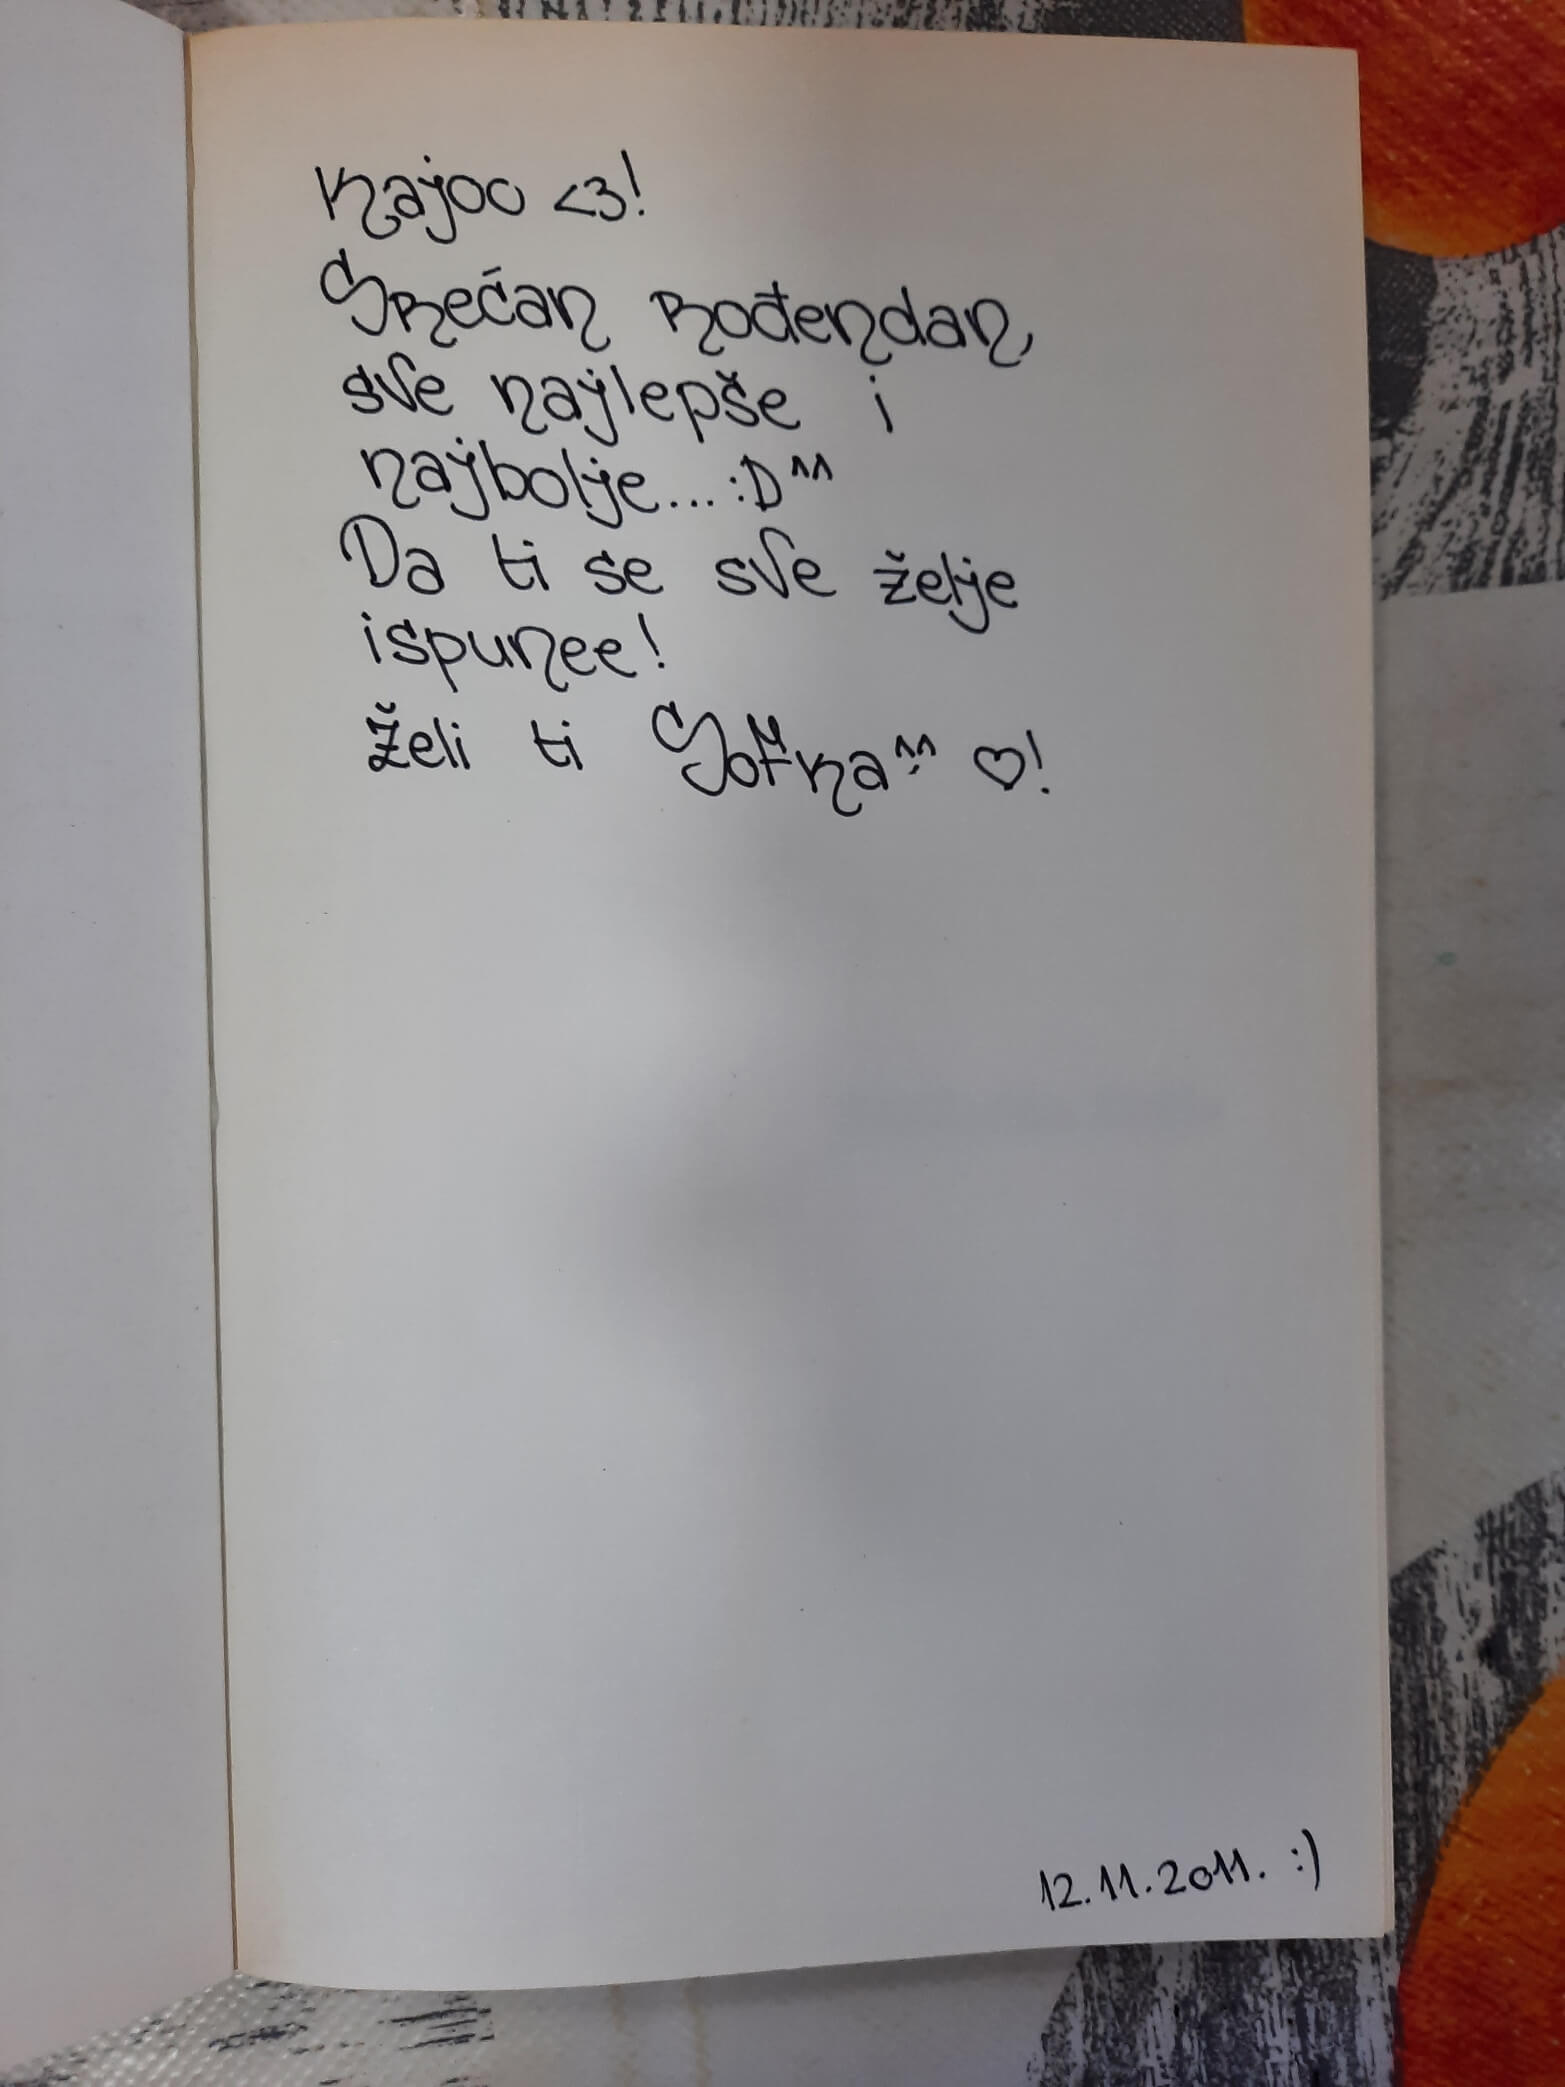 Kajoo <3!
Srećan rođendan,
sve najlepše i
najbolje... :D ^^
Da ti se sve želje
ispunee!
Želi ti Sofka ^^ ♡!
12.11.2011. :)